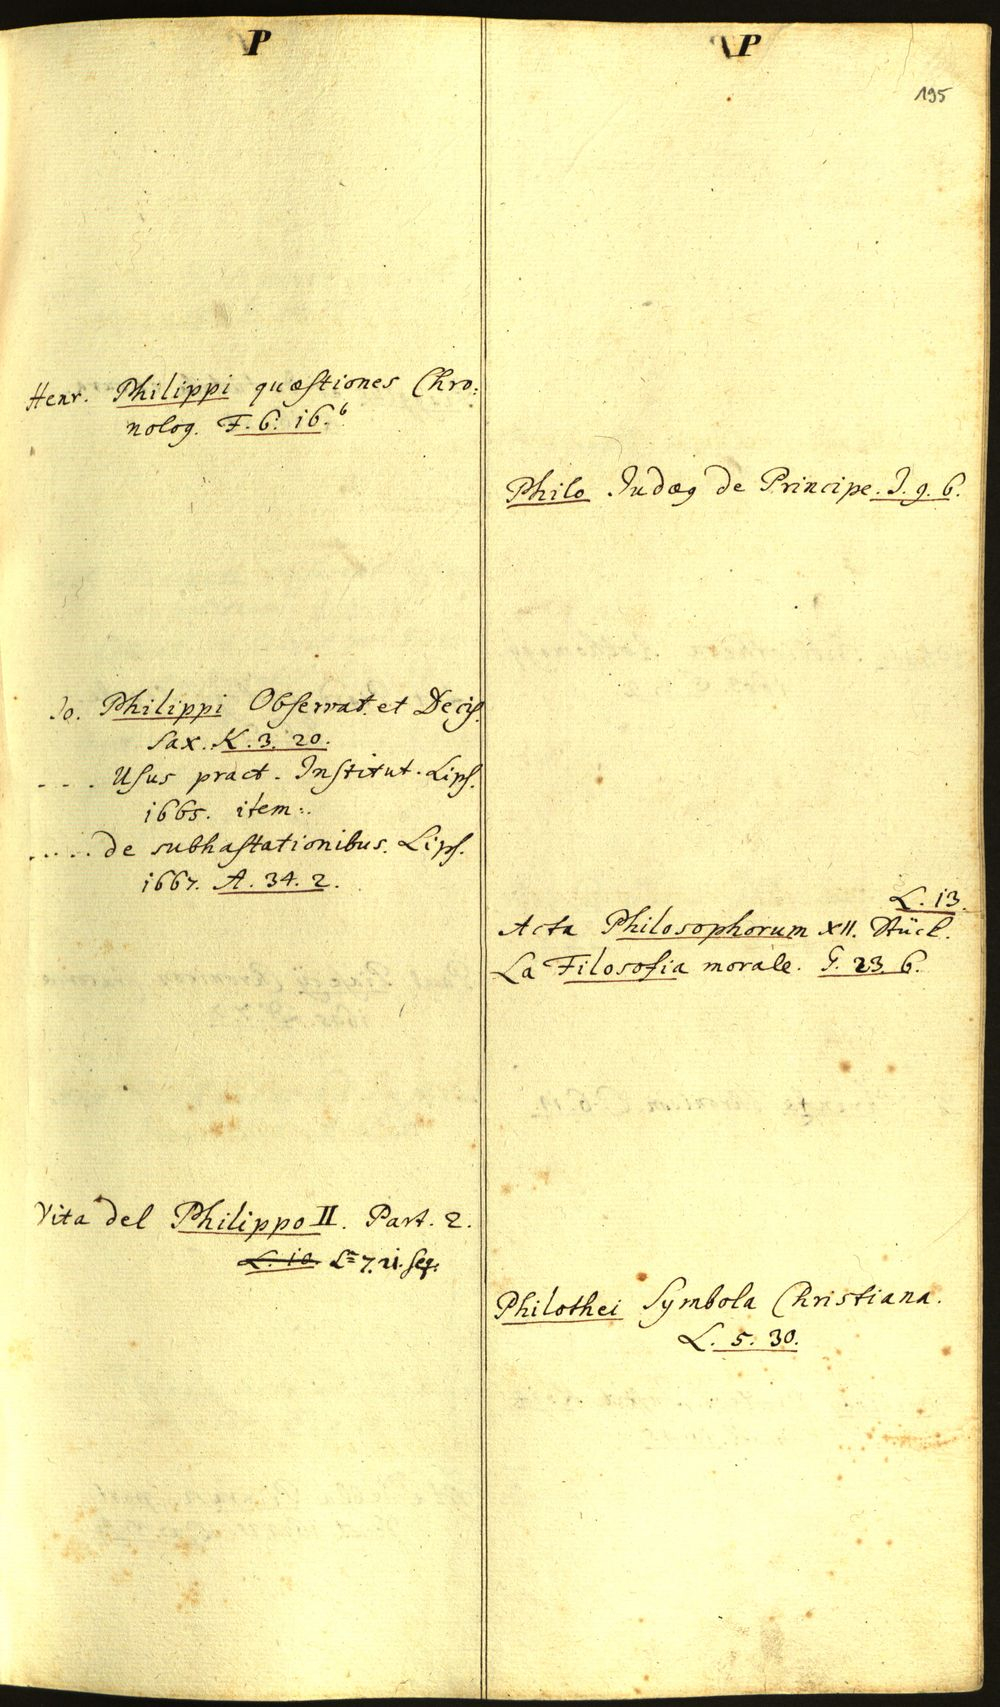 P
Henr. Philippi quæstiones Chro:
nolog. F. 6. 16.b
Jo. Philippi Observat. et Decis.
Sax. K. 3. 20.
.... Usus pract. Institut. Lips.
1665. item:.
..... de subhastationibus. Lips.
1667. A. 34. 2.
Vita del Philippo II. Part. 2.
L. 10. L= 7. 21. seq.
P
195
Philo Judæq de Principe. J. 9. 6.
L. 13.
Acta Philosophorum XII. Stück.
La Filosofia morale. G. 23. 6.
Philothei Symbola Christiana.
L. 5. 30.